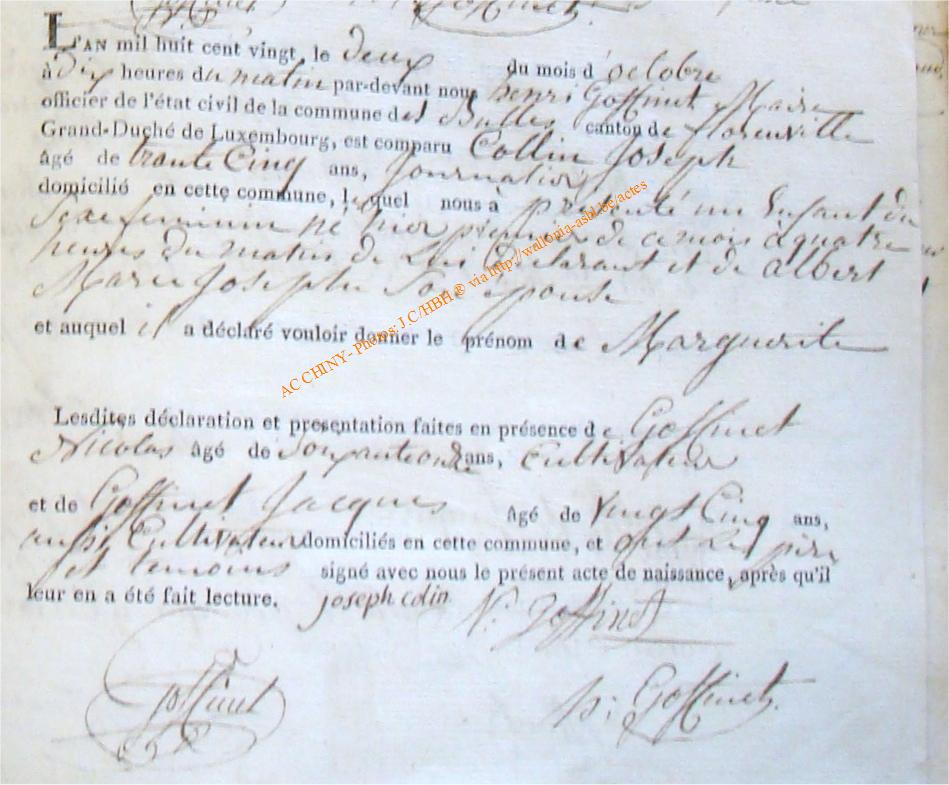 L'AN mil huit cent vingt, le deux du mois d'octobre
à Dix heures du matin par-devant nous henri Goffinet, Maire
officier de l'état civil de la commune des Bulles canton de florenville
Grand-Duché de Luxembourg, est comparu Collin Joseph
âgé de trante Cinq ans, Journalier
domicilié en cette commune, lequel nous à présenté un Enfant du
Sexe feminin né hier premier de ce mois à quatre
heures du matin de Lui Declarant et de albert
Marie Josephe Son épouse
et auquel il a déclaré vouloir donner le prénom de Marguerite
AC CHINY- Photos: J.C/HBH ® via http://wallonia-asbl.be/actes
Lesdites déclaration et présentation faites en présence de Goffinet
Nicolas âgé de ans, Cultivateur
et de Goffinet Jacques âgé de vingt Cinq ans,
aussi Cultivateur domiciliés en cette commune, et ont Les père
et temoins signé avec nous le présent acte de naissance, après qu'il
leur en a été fait lecture. joseph colin N: Goffinet
Goffinet
h: Goffinet.